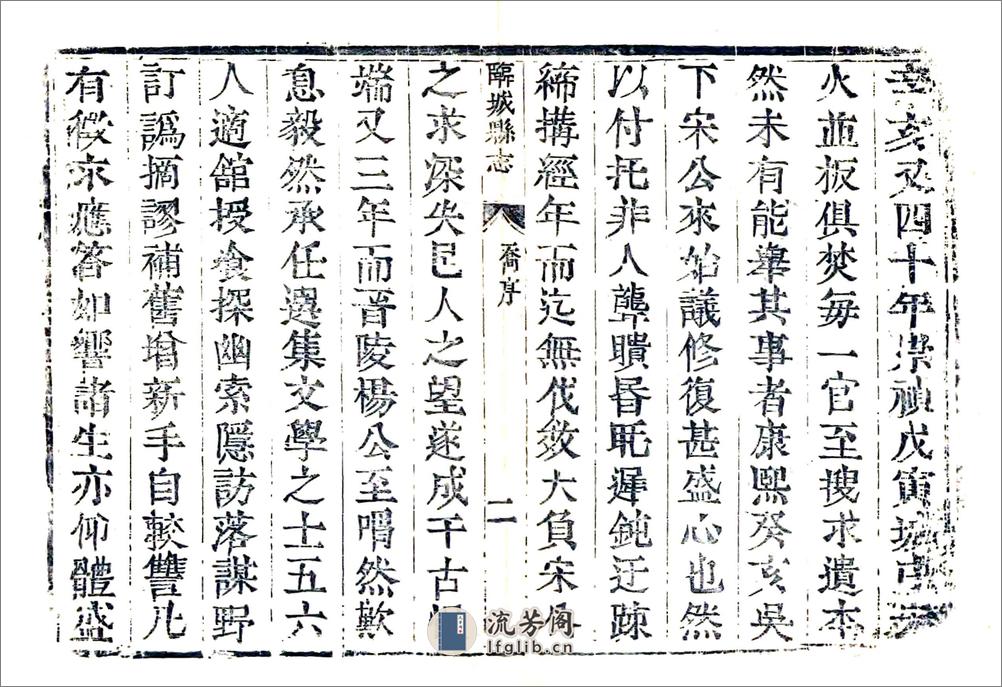 辛亥又四十年崇禎戊寅城
火並板俱焚每一官至搜求遺本
然未有能舉其事者康熙癸亥吳
下宋公來始議修復甚盛心也然
以付托非人聾聵昏眊遲鈍迂踈
締搆經年而迄無伐效大負宋
臨城縣志
喬序
二
之求深失邑人之望遂成千古
端又三年而晉陵楊公至喟然歎
息毅然承任選集文學之士五六
人適館授飡探幽索隱訪落謀野
訂譌摘謬補舊增新手自較讐凡
有徵求應答如響諸生亦仰體盛
流芳阁
lfglib.cn